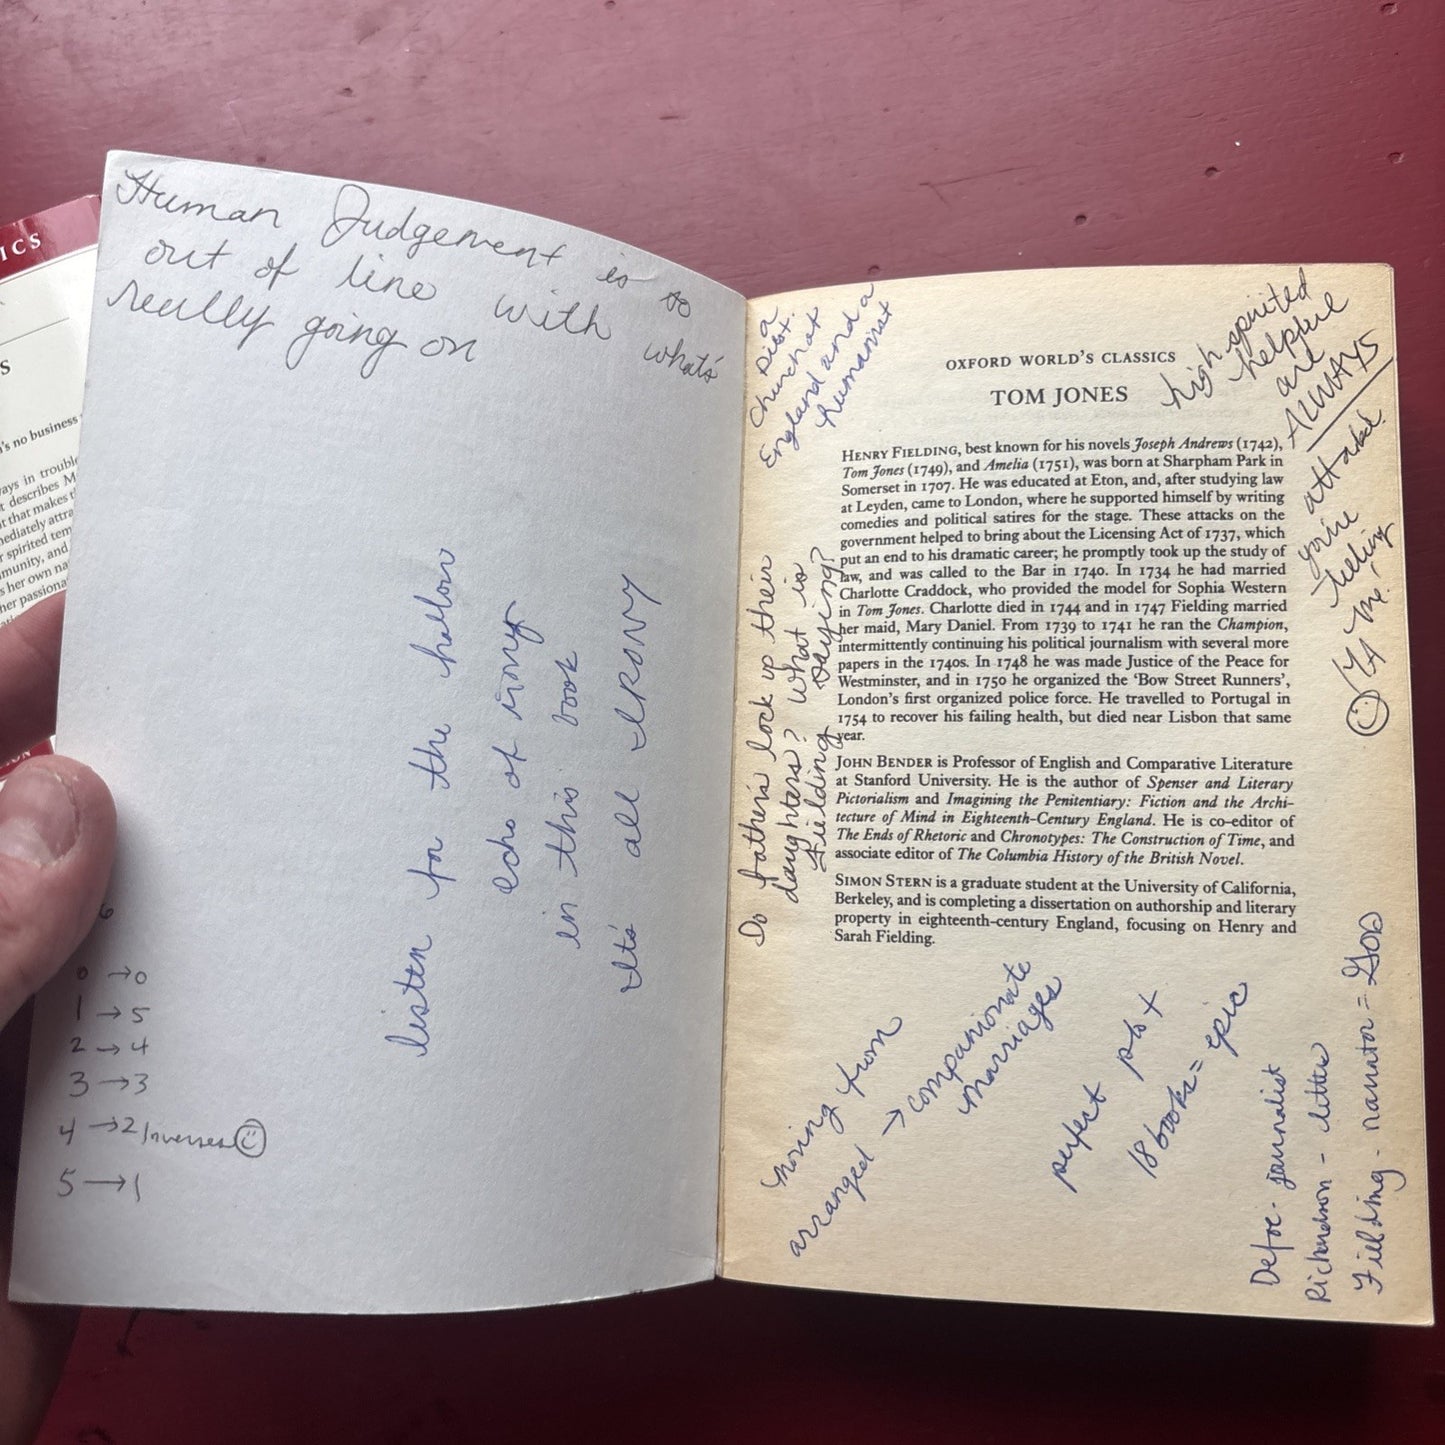 ICS
S
's no business
ays in trouble
t describes M
t that makes t
mediately attra
r spirited tem
mmunity, and
s her own na
her passiona
Human Judgement is so
out of line with what's
really going on
listen for the hollow
echo of irony
in this book
It's all IRONY
6
0 → 0
1 → 5
2 → 4
3 → 3
4 → 2 Inverses
5 → 1
a
Dist.
Church of
England and a
humanist
OXFORD WORLD'S CLASSICS
TOM JONES
high spirited
helpful
are
ALWAYS
attacked.
you're
telling
me!
HENRY FIELDING, best known for his novels Joseph Andrews (1742),
Tom Jones (1749), and Amelia (1751), was born at Sharpham Park in
Somerset in 1707. He was educated at Eton, and, after studying law
at Leyden, came to London, where he supported himself by writing
comedies and political satires for the stage. These attacks on the
government helped to bring about the Licensing Act of 1737, which
put an end to his dramatic career; he promptly took up the study of
law, and was called to the Bar in 1740. In 1734 he had married
Charlotte Craddock, who provided the model for Sophia Western
in Tom Jones. Charlotte died in 1744 and in 1747 Fielding married
her maid, Mary Daniel. From 1739 to 1741 he ran the Champion,
intermittently continuing his political journalism with several more
papers in the 1740s. In 1748 he was made Justice of the Peace for
Westminster, and in 1750 he organized the 'Bow Street Runners',
London's first organized police force. He travelled to Portugal in
1754 to recover his failing health, but died near Lisbon that same
year.
JOHN BENDER is Professor of English and Comparative Literature
at Stanford University. He is the author of Spenser and Literary
Pictorialism and Imagining the Penitentiary: Fiction and the Archi-
tecture of Mind in Eighteenth-Century England. He is co-editor of
The Ends of Rhetoric and Chronotypes: The Construction of Time, and
associate editor of The Columbia History of the British Novel.
SIMON STERN is a graduate student at the University of California,
Berkeley, and is completing a dissertation on authorship and literary
property in eighteenth-century England, focusing on Henry and
Sarah Fielding.
Do fathers lock up their
daughters? What is
Fielding saying?
moving from
arranged → companionate
marriages
perfect plot
18 books = epic
Defoe - journalist
Richardson - letters
Fielding - narrator = GOD